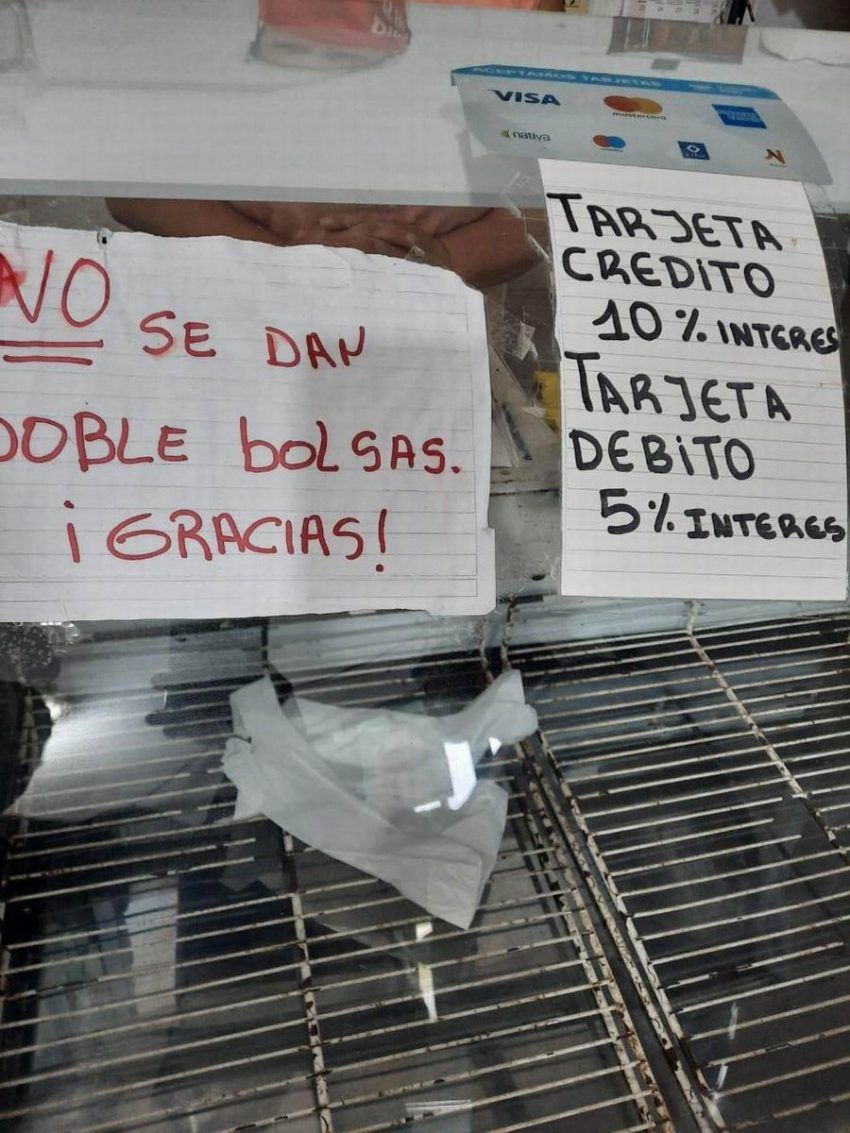 ACEPTAMOS TARJETAS
VISA
mastercard
nativa
NO SE DAN
DOBLE bOLSAS.
¡GRACIAS!
TARJETA
CREDITO
10% INTERES
TARJETA
DEBITO
5% INTERES